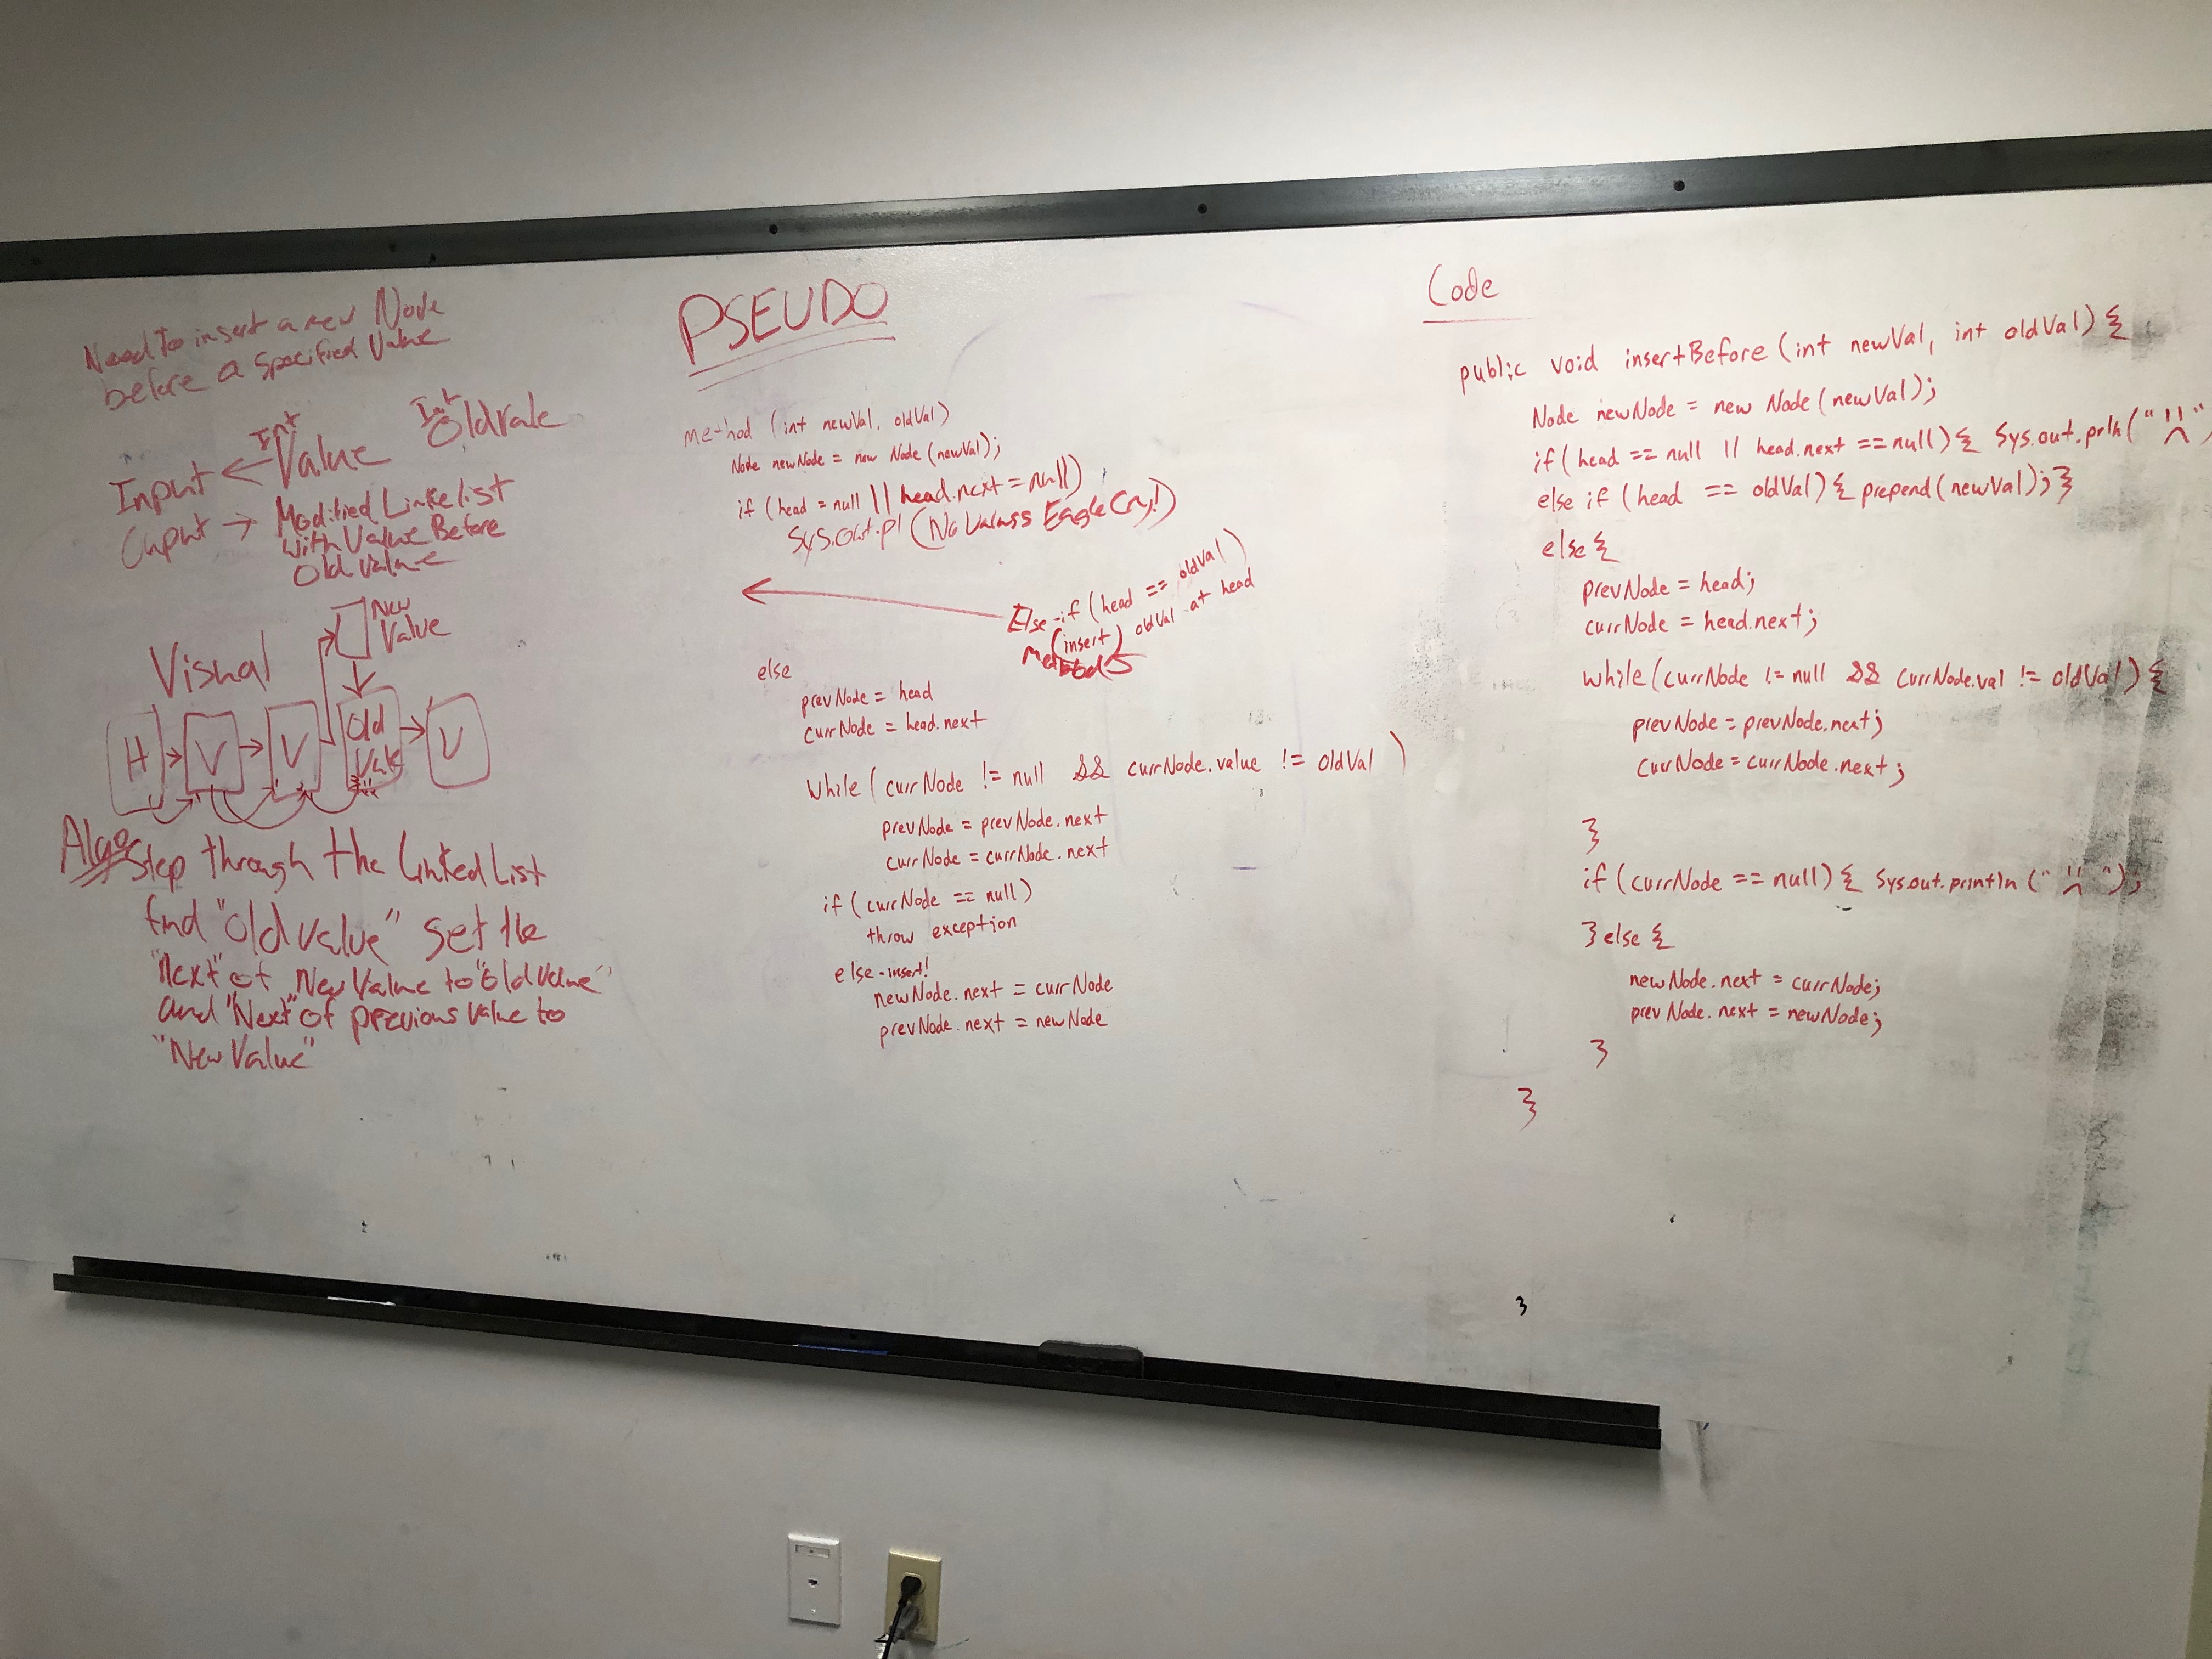 Need To insert a new Node
before a specified Value
Int Int
Value Old vale
Input ←
Ouput → Modified Linke list
with Value Before
Old value
New
Value
Visual
H V V Old
Vale V
Algo
Step through the Linked List
find "old value" set the
"next" of New Value to "old value"
and "Next" of previous value to
"New Value"
PSEUDO
method (int newVal, oldVal)
Node newNode = new Node (newVal);
if (head = null || head.next = null)
Sys.out.pl (No Values Eagle Cry!)
Else-if (head == oldVal)
(insert) oldVal at head
else
prevNode = head
currNode = head.next
While (currNode != null && currNode.value != oldVal )
prevNode = prevNode.next
currNode = currNode.next
if (currNode == null)
throw exception
else-insert!
newNode.next = currNode
prevNode.next = newNode
Code
public void insertBefore (int newVal, int oldVal) {
Node newNode = new Node (newVal);
if (head == null || head.next == null) { Sys.out.prln ("
else if (head == oldVal) { prepend (newVal); }
else {
prevNode = head;
currNode = head.next;
while (currNode != null && currNode.val != oldVal) {
prevNode = prevNode.next;
currNode = currNode.next;
}
if (currNode == null) { Sys.out.println (" ");
} else {
newNode.next = currNode;
prevNode.next = newNode;
}
}